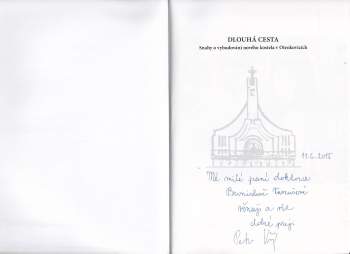 DLOUHÁ CESTA
Snahy o vybudování nového kostela v Otrokovicích
11.6.2015
Mé milé paní doktorce
věnuji a vše
dobré přeji
Petr